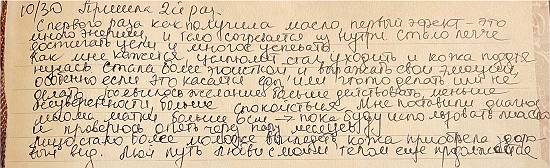 10/30 Пришела 2й раз.
С первого раза как получила масло первый эфект - это
много энергии, и тело согревается из нутри стало легче
достигать цели и многое успевать.
Как мне кажется целлюлит стал уходить и кожа подтя
нулась стала более и выражать свои эмоции,
особенно если это касается еды или что-то делать или не
делать. появилось желание больше действовать, меньше
неуверенности, больше спокойствия. Мне поставили диагноз
миома матки больше 8см → пока буду использовать масла
и проверюсь опять через пару месяцев.
лицо стало более моложе выглядеть кожа приобрела здоро
вый вид. Мой путь любви с моим телом ещё продолжается